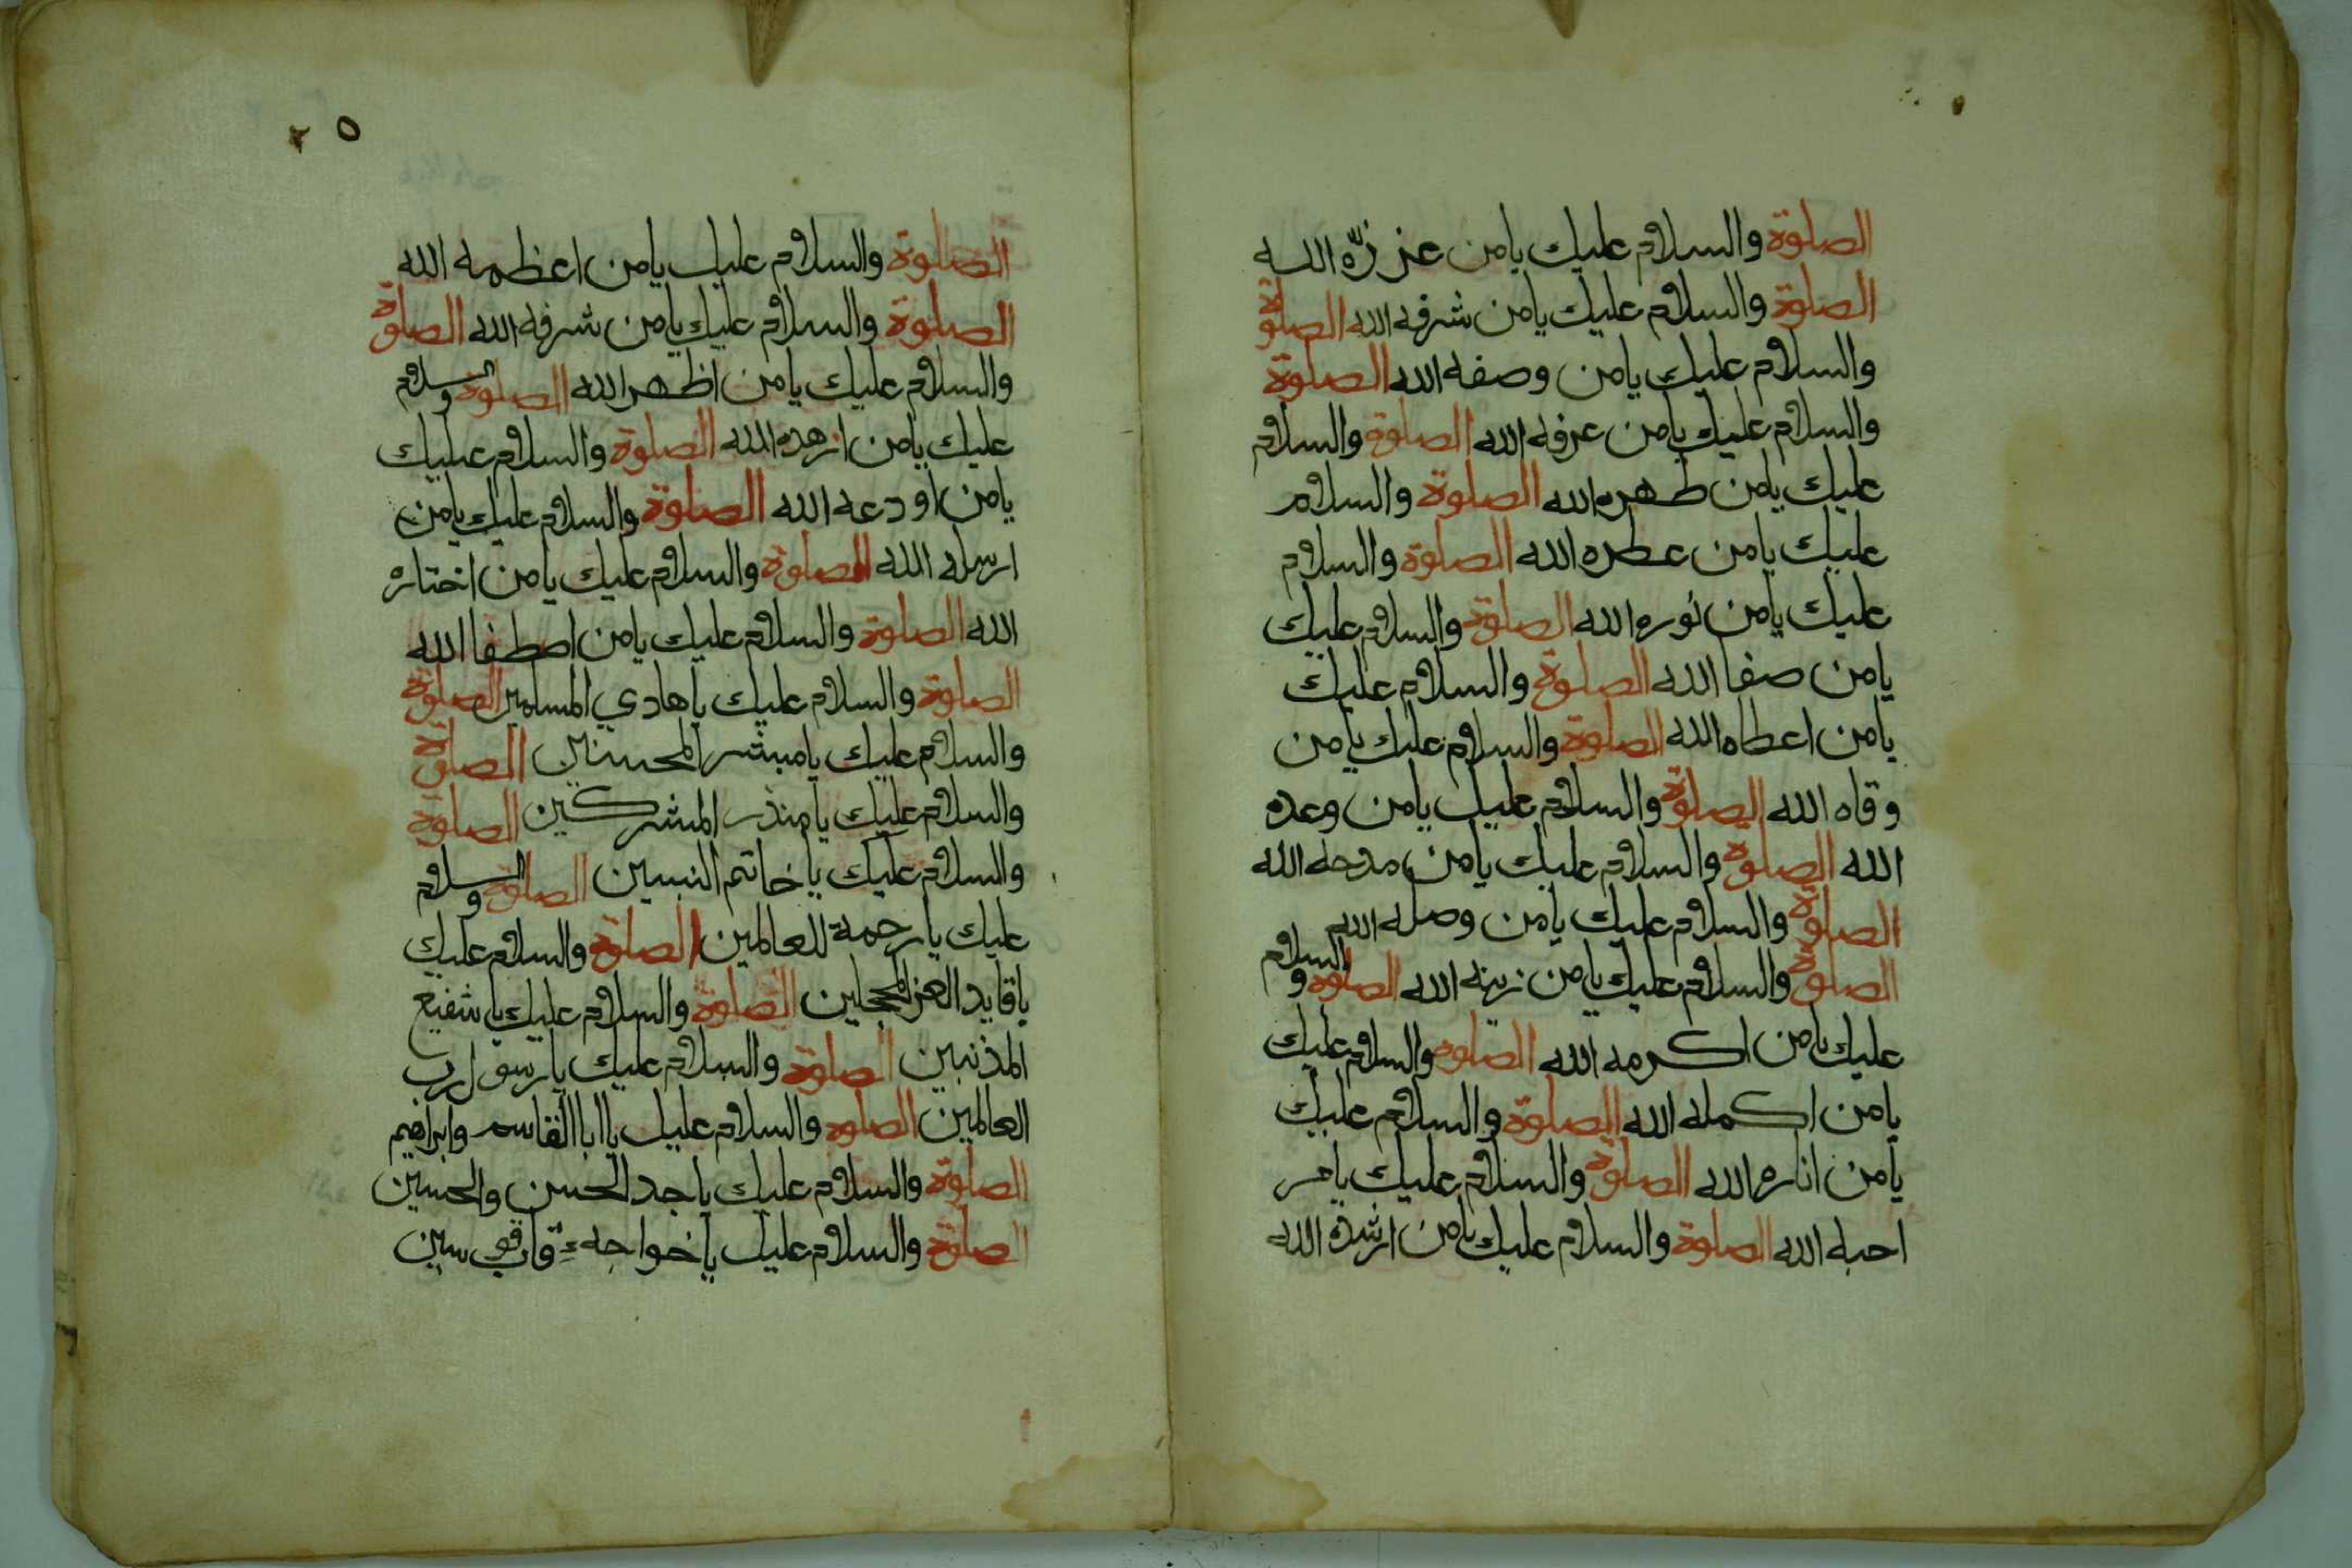 الصلوة والسلام عليك يا من عززّه الله
الصلوة والسلام عليك يا من شرفه الله الصلوة
والسلام عليك يا من وصفه الله الصلوة
والسلام عليك يا من عرفه الله الصلوة والسلام
عليك يا من طهره الله الصلوة والسلام
عليك يا من عطره الله الصلوة والسلام
عليك يا من نوره الله الصلوة والسلام عليك
يا من صفا الله الصلوة والسلام عليك
يا من اعطاه الله الصلوة والسلام عليك يا من
وقاه الله الصلوة والسلام عليك يا من وعده
الله الصلوة والسلام عليك يا من مدحه الله
الصلوة والسلام عليك يا من وصله الله
الصلوة والسلام عليك يا من زينه الله الصلوة والسلام
عليك يا من اكرمه الله الصلوة والسلام عليك
يا من اكمله الله الصلوة والسلام عليك
يا من اناره الله الصلوة والسلام عليك يا من
احبه الله الصلوة والسلام عليك يا من ارشده الله
٢٥
الصلوة والسلام عليك يا من اعظمه الله
الصلوة والسلام عليك يا من شرفه الله الصلوة
والسلام عليك يا من اظهر الله الصلوة والسلام
عليك يا من ازهده الله الصلوة والسلام عليك
يا من اودعه الله الصلوة والسلام عليك يا من
ارسله الله الصلوة والسلام عليك يا من اختاره
الله الصلوة والسلام عليك يا من اصطفا الله
الصلوة والسلام عليك يا هادي المسلمين الصلوة
والسلام عليك يا مبشر المحسنين الصلوة
والسلام عليك يا منذر المشركين الصلوة
والسلام عليك يا خاتم النبيين الصلوة والسلام
عليك يا رحمة للعالمين الصلوة والسلام عليك
يا قايد الغر المحجلين الصلوة والسلام عليك يا شفيع
المذنبين الصلوة والسلام عليك يا رسول رب
العالمين الصلوة والسلام عليك يا ابا القاسم وابراهيم
الصلوة والسلام عليك يا جد الحسن والحسين
الصلوة والسلام عليك يا خواجهء قاب قوسين